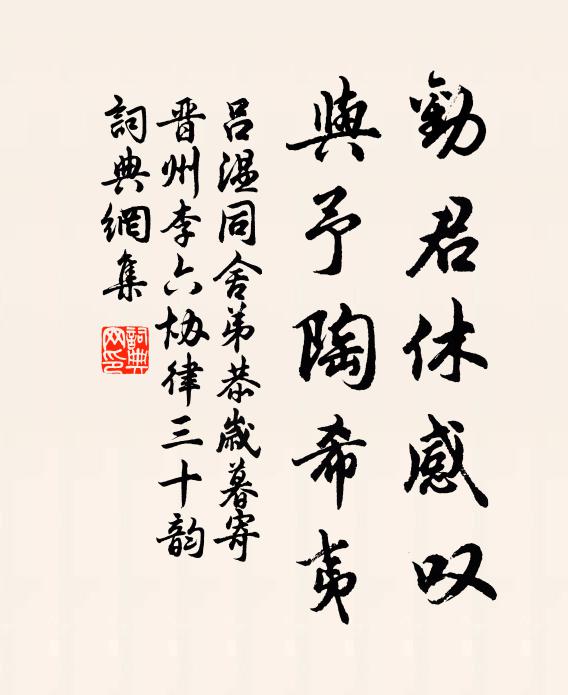 勸君休感叹
與予陶希夷
吕温同舍弟恭歲暮寄
晋州李六协律三十韵
詞典網集
詞典网印